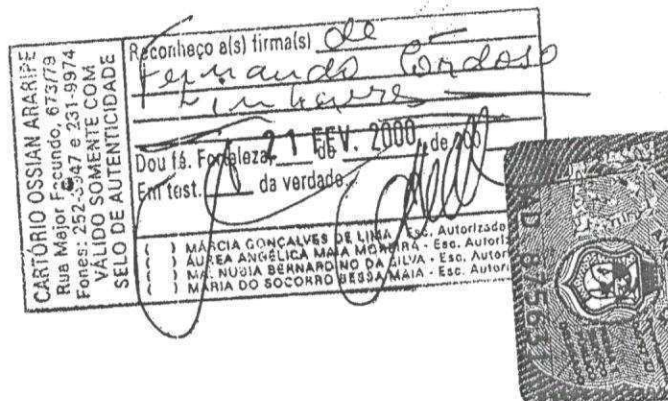 CARTÓRIO OSSIAN ARARIPE
Rua Major Facundo, 673/79
Fones: 252-3947 e 231-9974
VÁLIDO SOMENTE COM
SELO DE AUTENTICIDADE
Reconheço a(s) firma(s) de
Fernando Cardoso
Linhares
21 FEV. 2000
Dou fé. Fortaleza, de de 200
Em test. da verdade
( ) MÁRCIA GONÇALVES DE LIMA - Esc. Autorizado
( ) ÁUREA ANGÉLICA MAIA MOREIRA - Esc. Autori
( ) MA. NUBIA BERNARDINO DA SILVA - Esc. Autori
( ) MARIA DO SOCORRO BESSA MAIA - Esc. Autori
AD 875631